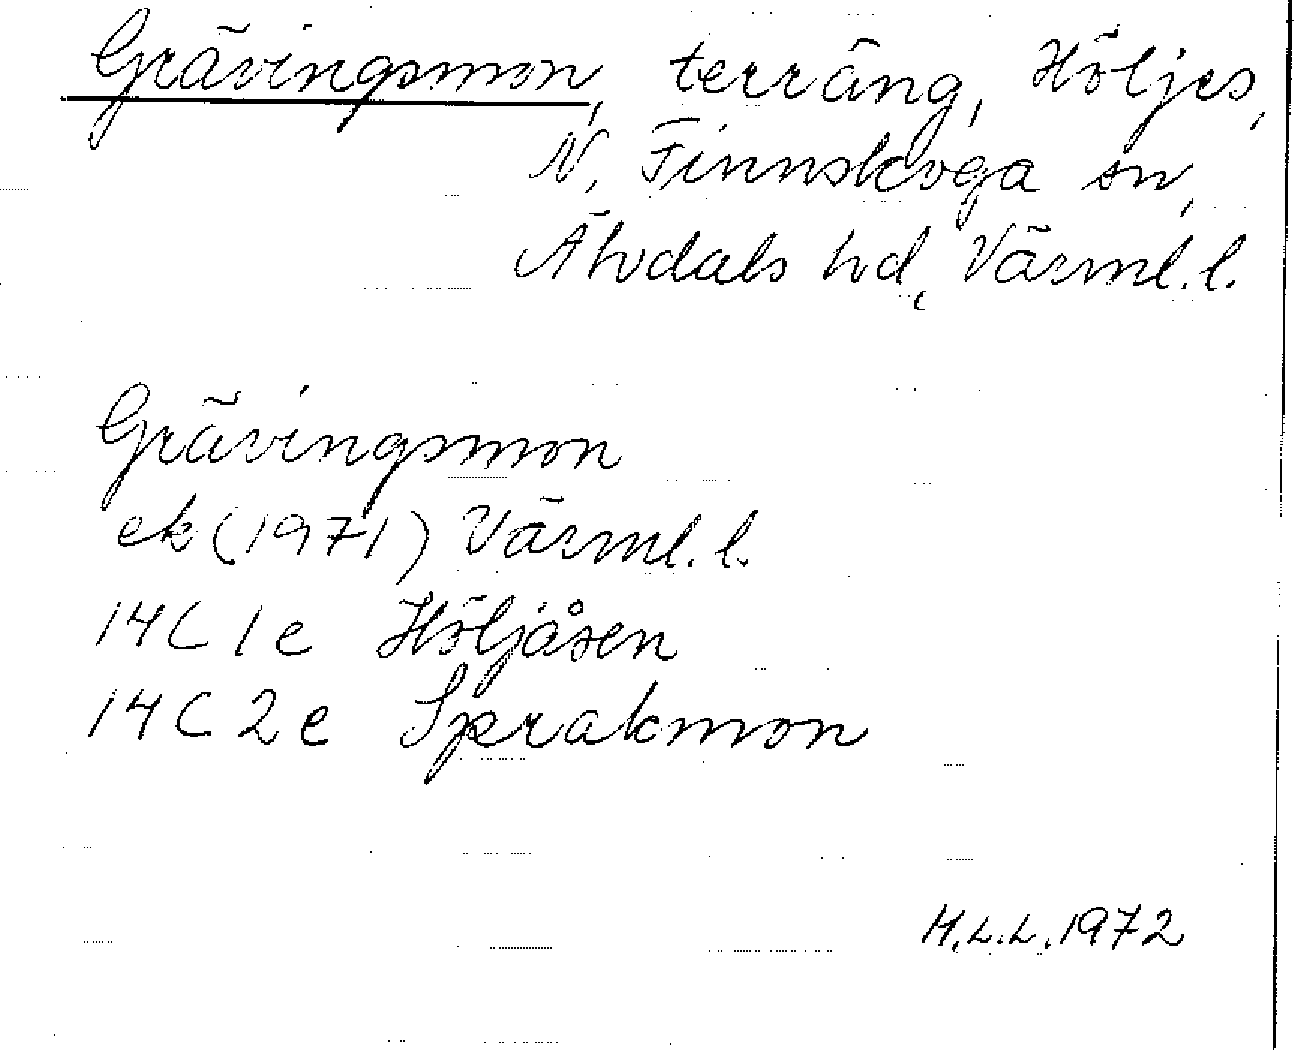 Grävingsmon, terräng, Höljes,
N. Finnskoga sn,
Älvdals hd, Värml. l.
Grävingsmon
ek (1971) Värml. l.
14C 1e Höljåsen
14C 2e Sprakmon
H.L.L. 1972